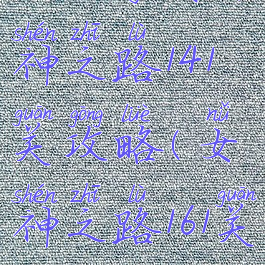 shén zhī lù
神之路141
quān gōng lüè nǚ
关攻略(女
shén zhī lù guān
神之路161关